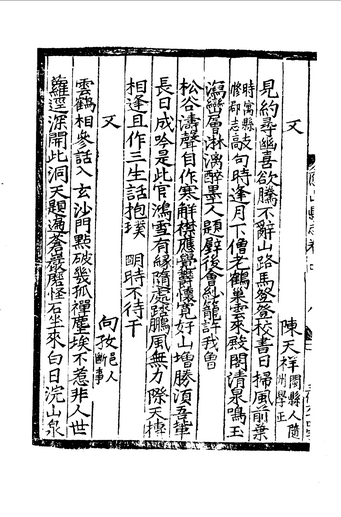 又
陳天祥
閩縣人隨
州學正
見約尋幽喜欲騰不辭山路馬登登校書日掃風前葉
時寓縣
修郡志
敲句時逢月下僧老鶴巢雲來殿閣清泉鳴玉
瀉層淋漓醉墨人題壁後會紀龍許我曾
松谷濤聲自作寒解襟應覺懷寬好山增勝須吾輩
長日成吟是此官鴻雪有緣隨處踏鵬風無力際天摶
相逢且作三生話抱璞明時不待干
又
向孜
邑人
斷事
雲鶴相參話入玄沙門點破幾孤禪塵埃不惹非人世
蘿逕深開此洞天題遍蒼巖磨怪石坐來白日浣山泉